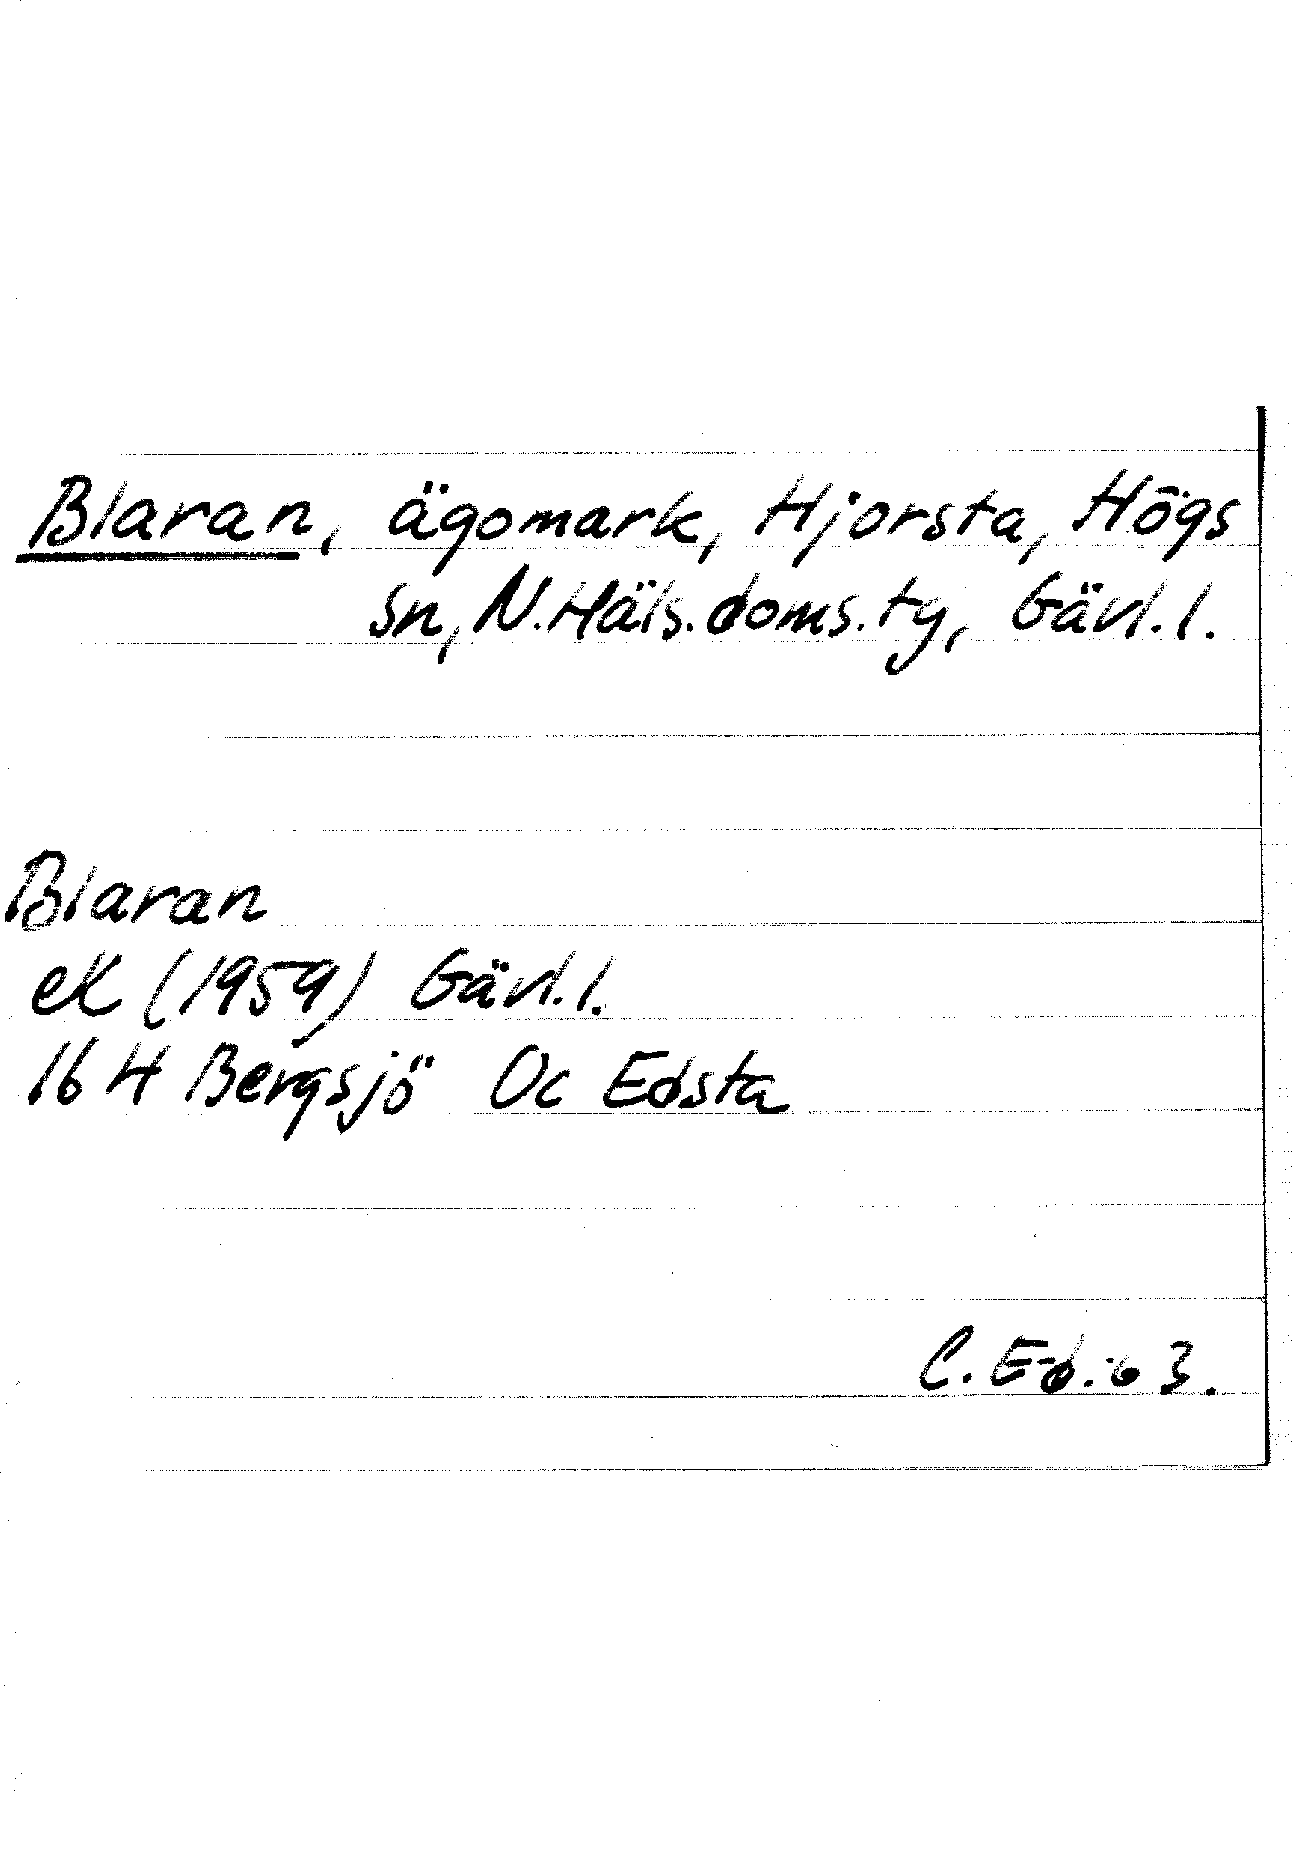 Blaran, ägomark, Hjorsta, Högs
sn, N.Häls.doms.tg, Gävl.l.
Blaran
eK (1959) Gävl.l.
16 H Bergsjö Oc Edsta
C. E-b. -63.